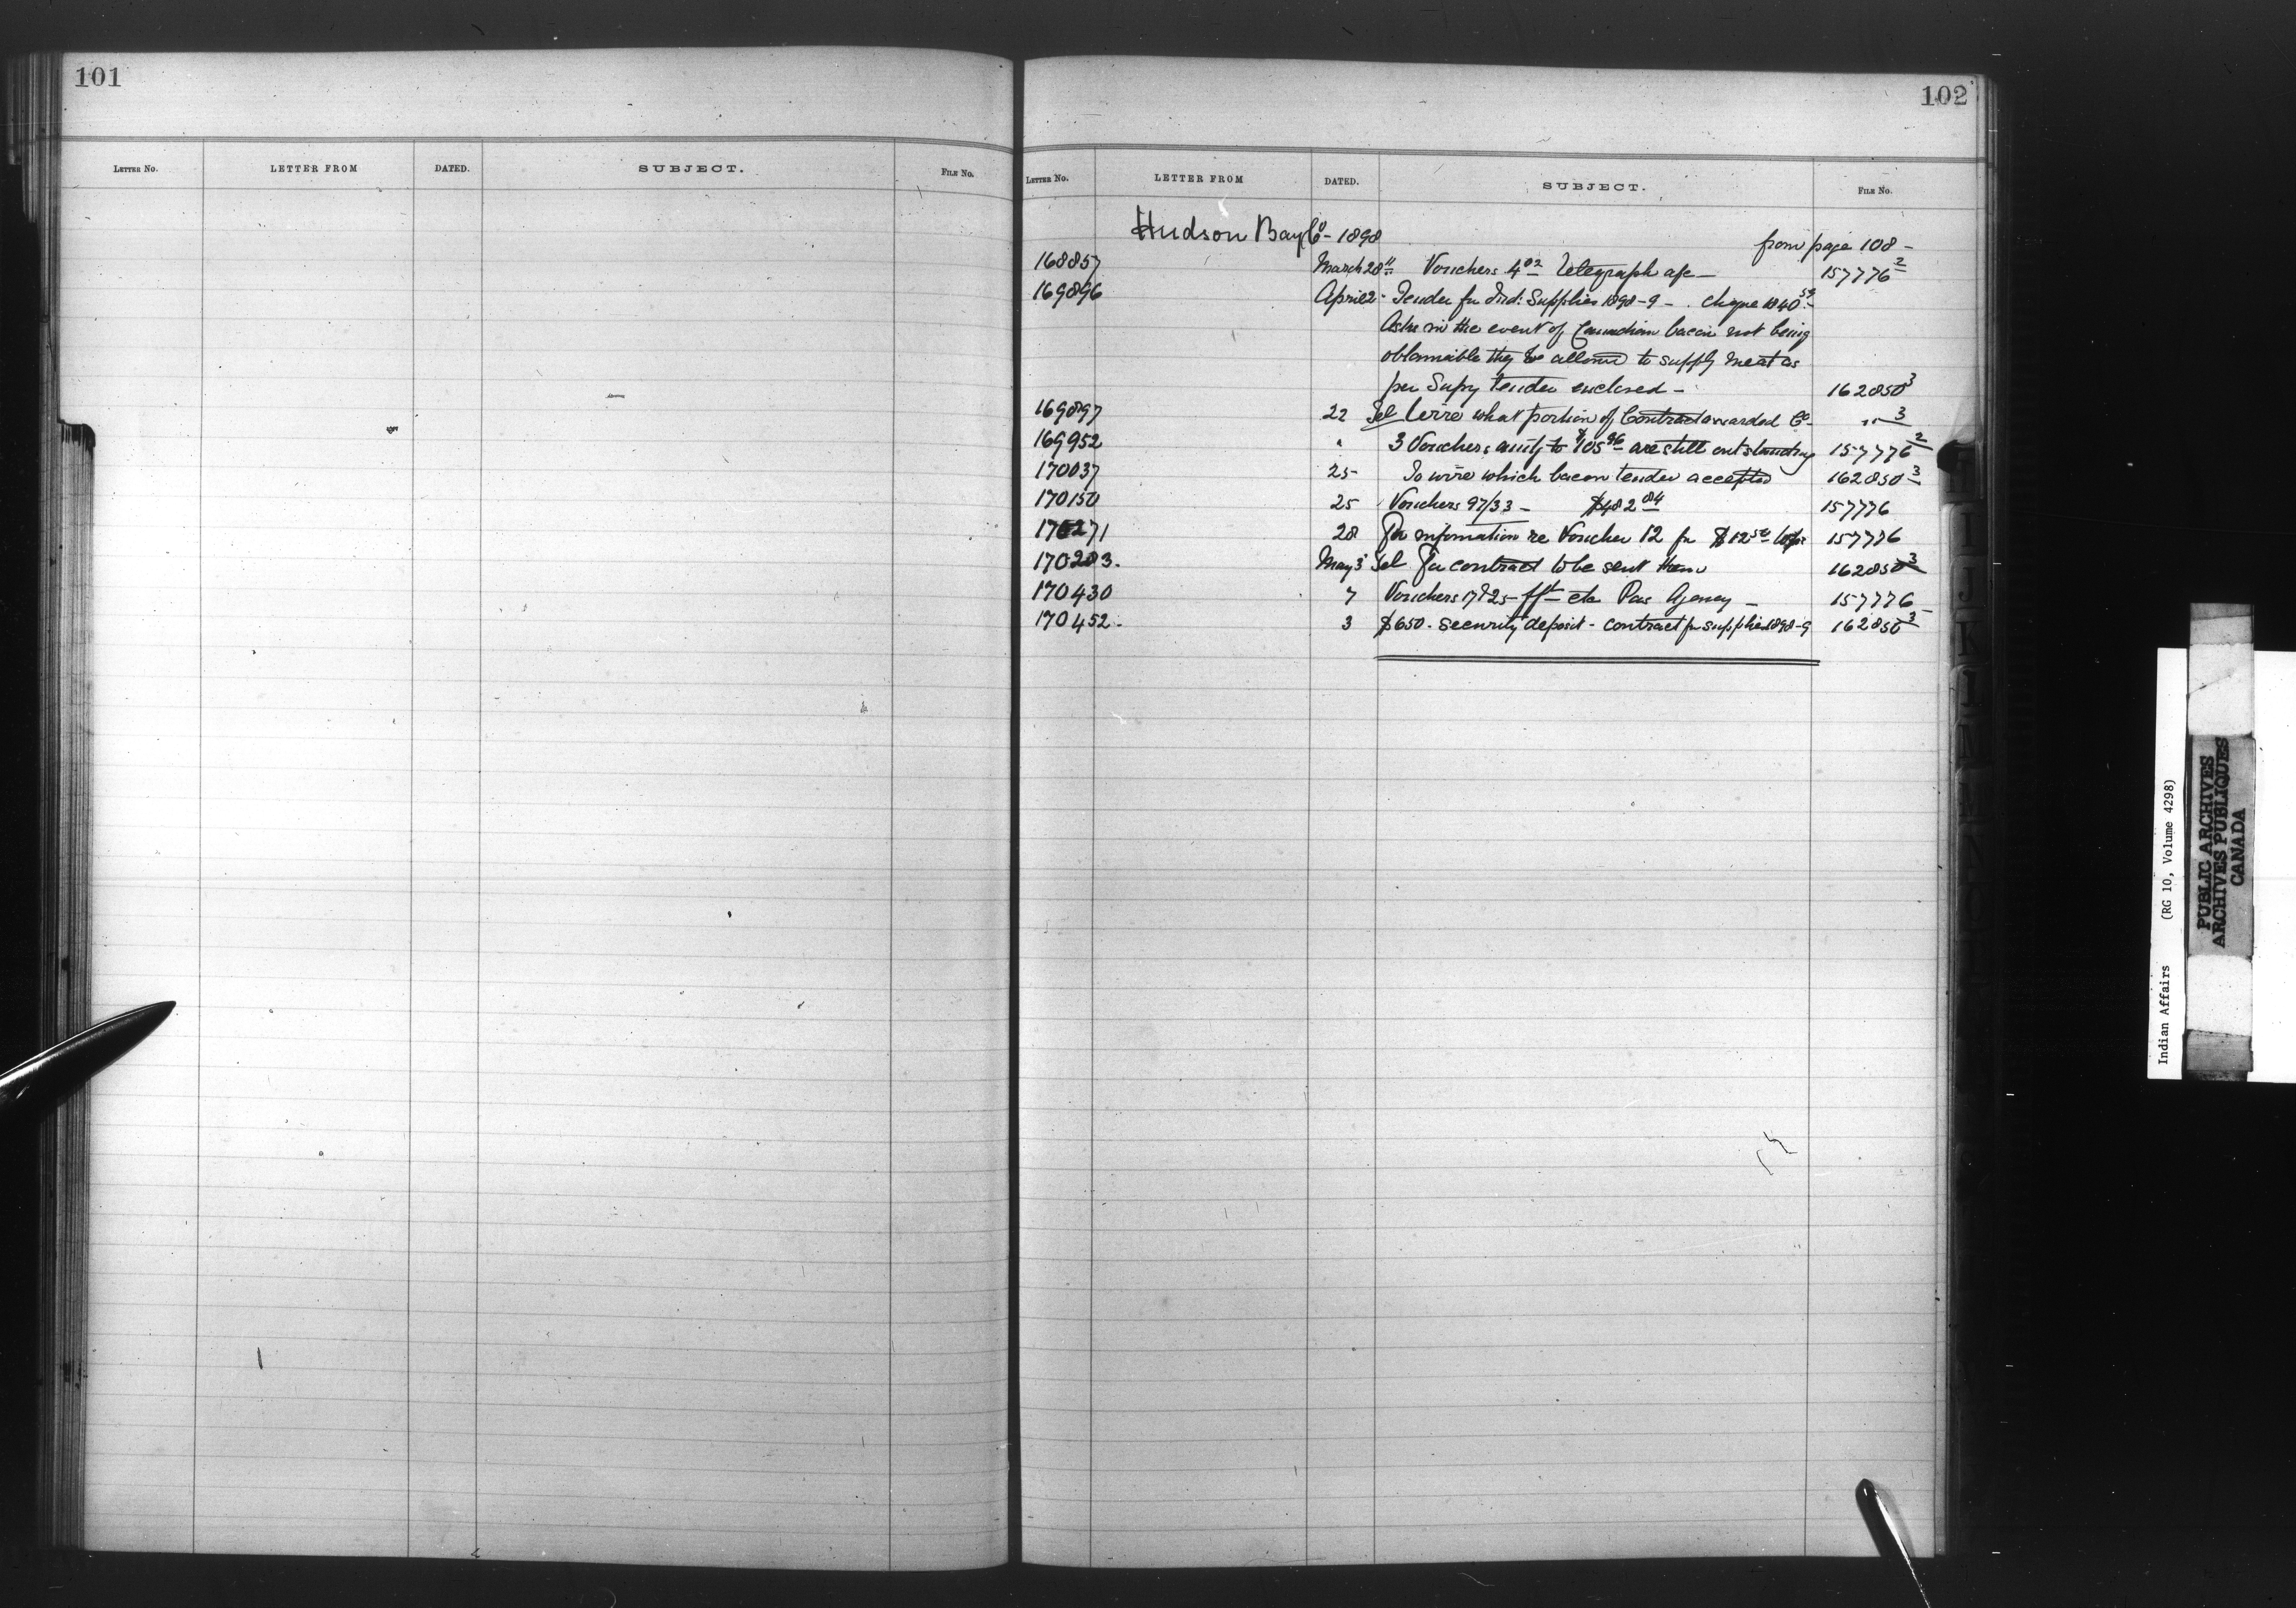 101
LETTER NO. LETTER FROM DATED. SUBJECT. FILE NO.
102
LETTER NO. LETTER FROM DATED. SUBJECT. FILE NO.
Hudson Bay Co - 1898
from page 108 -
168857 March 28 Vouchers 4.02 Telegraph a/c - 157776 2
169896 April 2 - Tender for Ind: Supplies 1898-9 - Cheque 1840
Asks in the event of Canadian bacon not being
obtainable they be allowed to supply meat as
per Supy tender enclosed - 162850 3
169897 22 Tel Wire what portion of Contract awarded Co - " 3
169952 " 3 Vouchers amtg to $105 96 are still outstanding 157776 2
170037 25 To wire which bacon tender accepted 162850 3
170150 25 Vouchers 97/33 - $482 84 157776
170271 28 For information re Voucher 12 for $12 50 157776
170283. May 3 Tel For contract to be sent them 162850 3
170430 7 Vouchers 17 & 25 - etc Pas Agency - 157776
170452 - 3 $650 - security deposit - contract for supplies 1898-9 162850 3
Indian Affairs (RG 10, Volume 4298)
PUBLIC ARCHIVES
ARCHIVES PUBLIQUES
CANADA